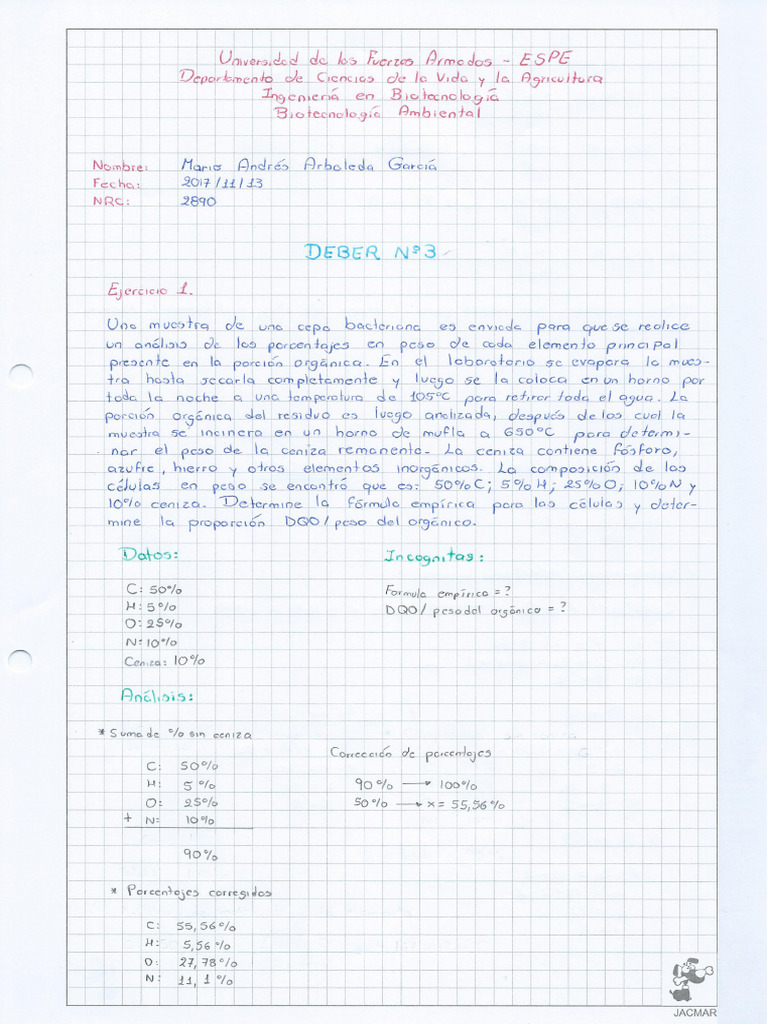 Universidad de las Fuerzas Armadas - ESPE
Departamento de Ciencias de la Vida y la Agricultura
Ingeniería en Biotecnología
Biotecnología Ambiental
Nombre: Mario Andrés Arboleda García
Fecha: 2017/11/13
NRC: 2890
DEBER Nº3
Ejercicio 1.
Una muestra de una cepa bacteriana es enviada para que se realice
un análisis de los porcentajes en peso de cada elemento principal
presente en la porción orgánica. En el laboratorio se evapora la mues-
tra hasta secarla completamente y luego se la coloca en un horno por
toda la noche a una temperatura de 105°C para retirar toda el agua. La
porción orgánica del residuo es luego analizada, después de los cual la
muestra se incinera en un horno de mufla a 650°C para determi-
nar el peso de la ceniza remanente. La ceniza contiene fósforo,
azufre, hierro y otros elementos inorgánicos. La composición de las
células en peso se encontró que es: 50% C; 5% H; 25% O; 10% N y
10% ceniza. Determine la fórmula empírica para las células y deter-
mine la proporción DQO/peso del orgánico.
Datos:
Incognitas:
C: 50%
H: 5%
O: 25%
N: 10%
Ceniza: 10%
Formula empírica = ?
DQO/ peso del orgánico = ?
Análisis:
* Suma de % sin ceniza
C: 50%
H: 5%
O: 25%
+ N: 10%
90%
Corrección de porcentajes
90% → 100%
50% → x = 55,56%
* Porcentajes corregidos
C: 55,56%
H: 5,56%
O: 27,78%
N: 11,1%
JACMAR